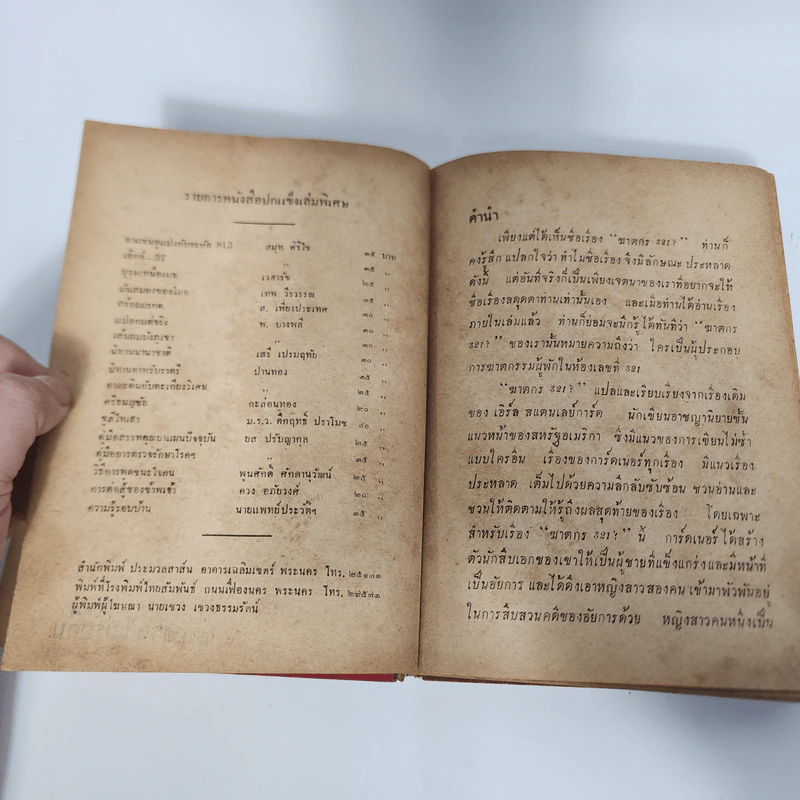 รายการหนังสือปกแข็งเล่มพิเศษ
813 สมุท ศิริไข ๓๕ บาท
๓๕ ,,
เวสารัช ๒๕ ,,
มันสมองของไทย เทพ วีรวรรณ ๓๕ ,,
ส. เพียงประเทศ
แปลกแต่จริง พ. บางพลี
เส้นผมบังภูเขา
นิทานนานาชาติ เสรี เปรมฤทัย ๓๐ ,,
นิทานอาหรับราตรี ปานทอง ๓๕ ,,
อาละดินกับตะเกียงวิเศษ ,,
ศรีธนญชัย กะล่อนทอง ๒๐ ,,
ชูสีไทเฮา ม.ร.ว. คึกฤทธิ์ ปราโมช ๔๐ ,,
คู่มือสรรพคุณยาแผนปัจจุบัน ยส ปรัญากุล ๒๕ ,,
คู่มือการตรวจรักษาโรคฯ ,, ๓๕ ,,
วิธีการพูดชนะใจคน พูนศักดิ์ ศักดานุวัฒน์ ๒๕ ,,
การต่อสู้ของข้าพเจ้า ควง อภัยวงศ์ ๒๐ ,,
ความรู้รอบบ้าน นายแพทย์ประวัติฯ ๓๕ ,,
สำนักพิมพ์ ประมวลสาส์น อาคารเฉลิมเขตร์ พระนคร โทร. ๒๕๔๗๓
พิมพ์ที่โรงพิมพ์ไทยสัมพันธ์ ถนนเฟื่องนคร พระนคร โทร. ๒๗๕๗๓
ผู้พิมพ์ผู้โฆษณา นายเชวง เชวงธรรมรัตน์
คำนำ
เพียงแต่ได้เห็นชื่อเรื่อง “ฆาตกร 321?” ท่านก็
คงรู้สึก แปลกใจว่า ทำไมชื่อเรื่อง จึงมีลักษณะ ประหลาด
ดังนี้ แต่อันที่จริงก็เป็นเพียงเจตนาของเราที่อยากจะให้
ชื่อเรื่องสดุดตาท่านเท่านั้นเอง และเมื่อท่านได้อ่านเรื่อง
ภายในเล่มแล้ว ท่านก็ย่อมจะนึกรู้ได้ทันทีว่า “ฆาตกร
321?” ของเรานั้นหมายความถึงว่า ใครเป็นผู้ประกอบ
การฆาตกรรมผู้พักในห้องเลขที่ 321
“ฆาตกร 321?” แปลและเรียบเรียงจากเรื่องเดิม
ของ เอิร์ล สแตนเลย์การ์ด นักเขียนอาชญานิยายชั้น
แนวหน้าของสหรัฐอเมริกา ซึ่งมีแนวของการเขียนไม่ซ้ำ
แบบใครอื่น เรื่องของการ์ดเนอร์ทุกเรื่อง มีแนวเรื่อง
ประหลาด เต็มไปด้วยความลึกลับซับซ้อน ชวนอ่านและ
ชวนให้ติดตามให้รู้ถึงผลสุดท้ายของเรื่อง โดยเฉพาะ
สำหรับเรื่อง “ฆาตกร 321?” นี้ การ์ดเนอร์ได้สร้าง
ตัวนักสืบเอกของเขาให้เป็นผู้ชายที่แข็งแกร่ง และมีหน้าที่
เป็นอัยการ และได้ดึงเอาหญิงสาวสองคน เข้ามาพัวพันอยู่
ในการสืบสวนคดีของอัยการด้วย หญิงสาวคนหนึ่งเป็น